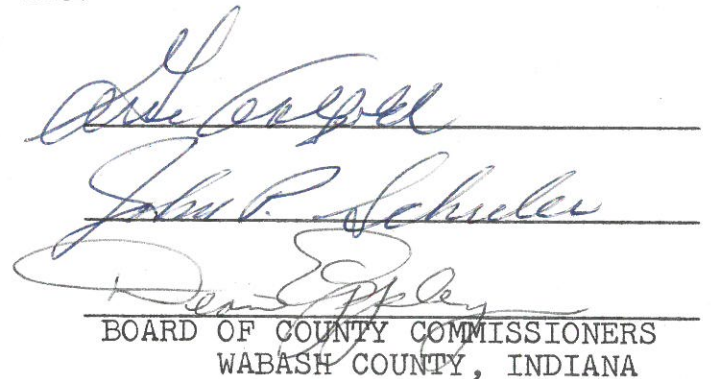 John P. Schuler
Dean Eppley
BOARD OF COUNTY COMMISSIONERS
WABASH COUNTY, INDIANA